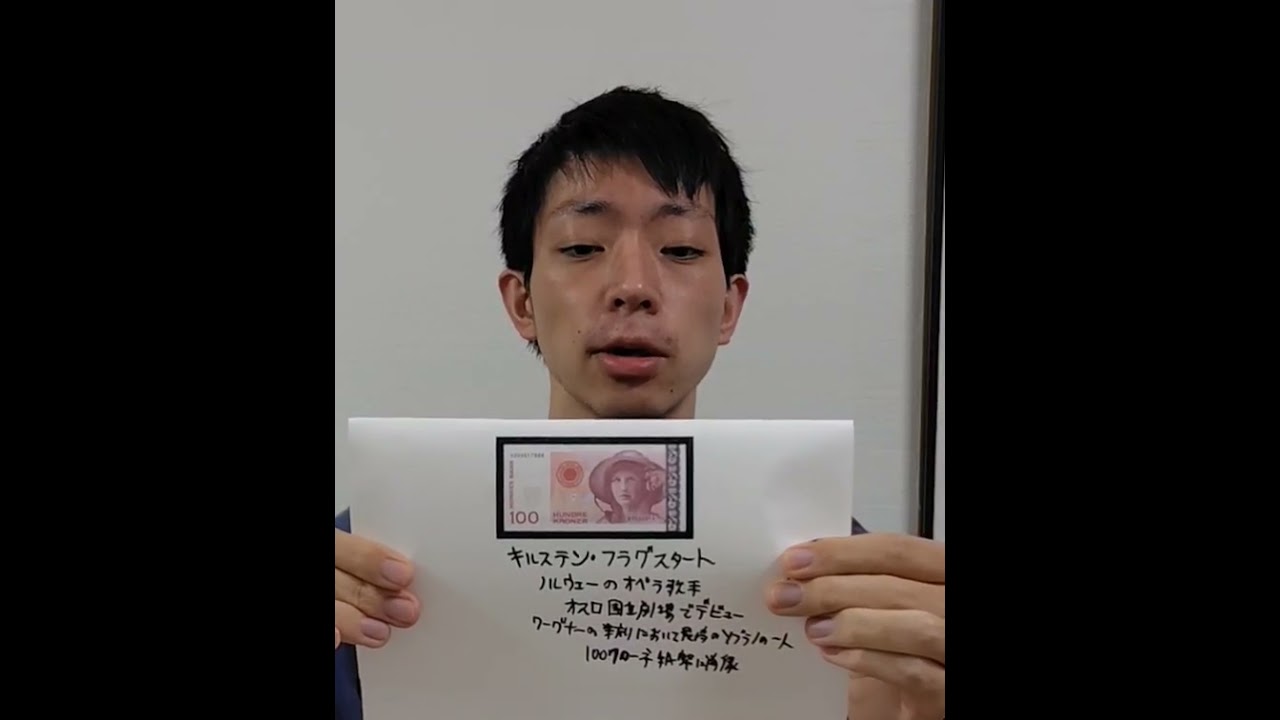 100
HUNDRE
KRONER
キルステン・フラグスタート
ノルウェーのオペラ歌手
オスロ国立劇場でデビュー
ワーグナーの楽劇において最高のソプラノの一人
100クローネ紙幣に肖像